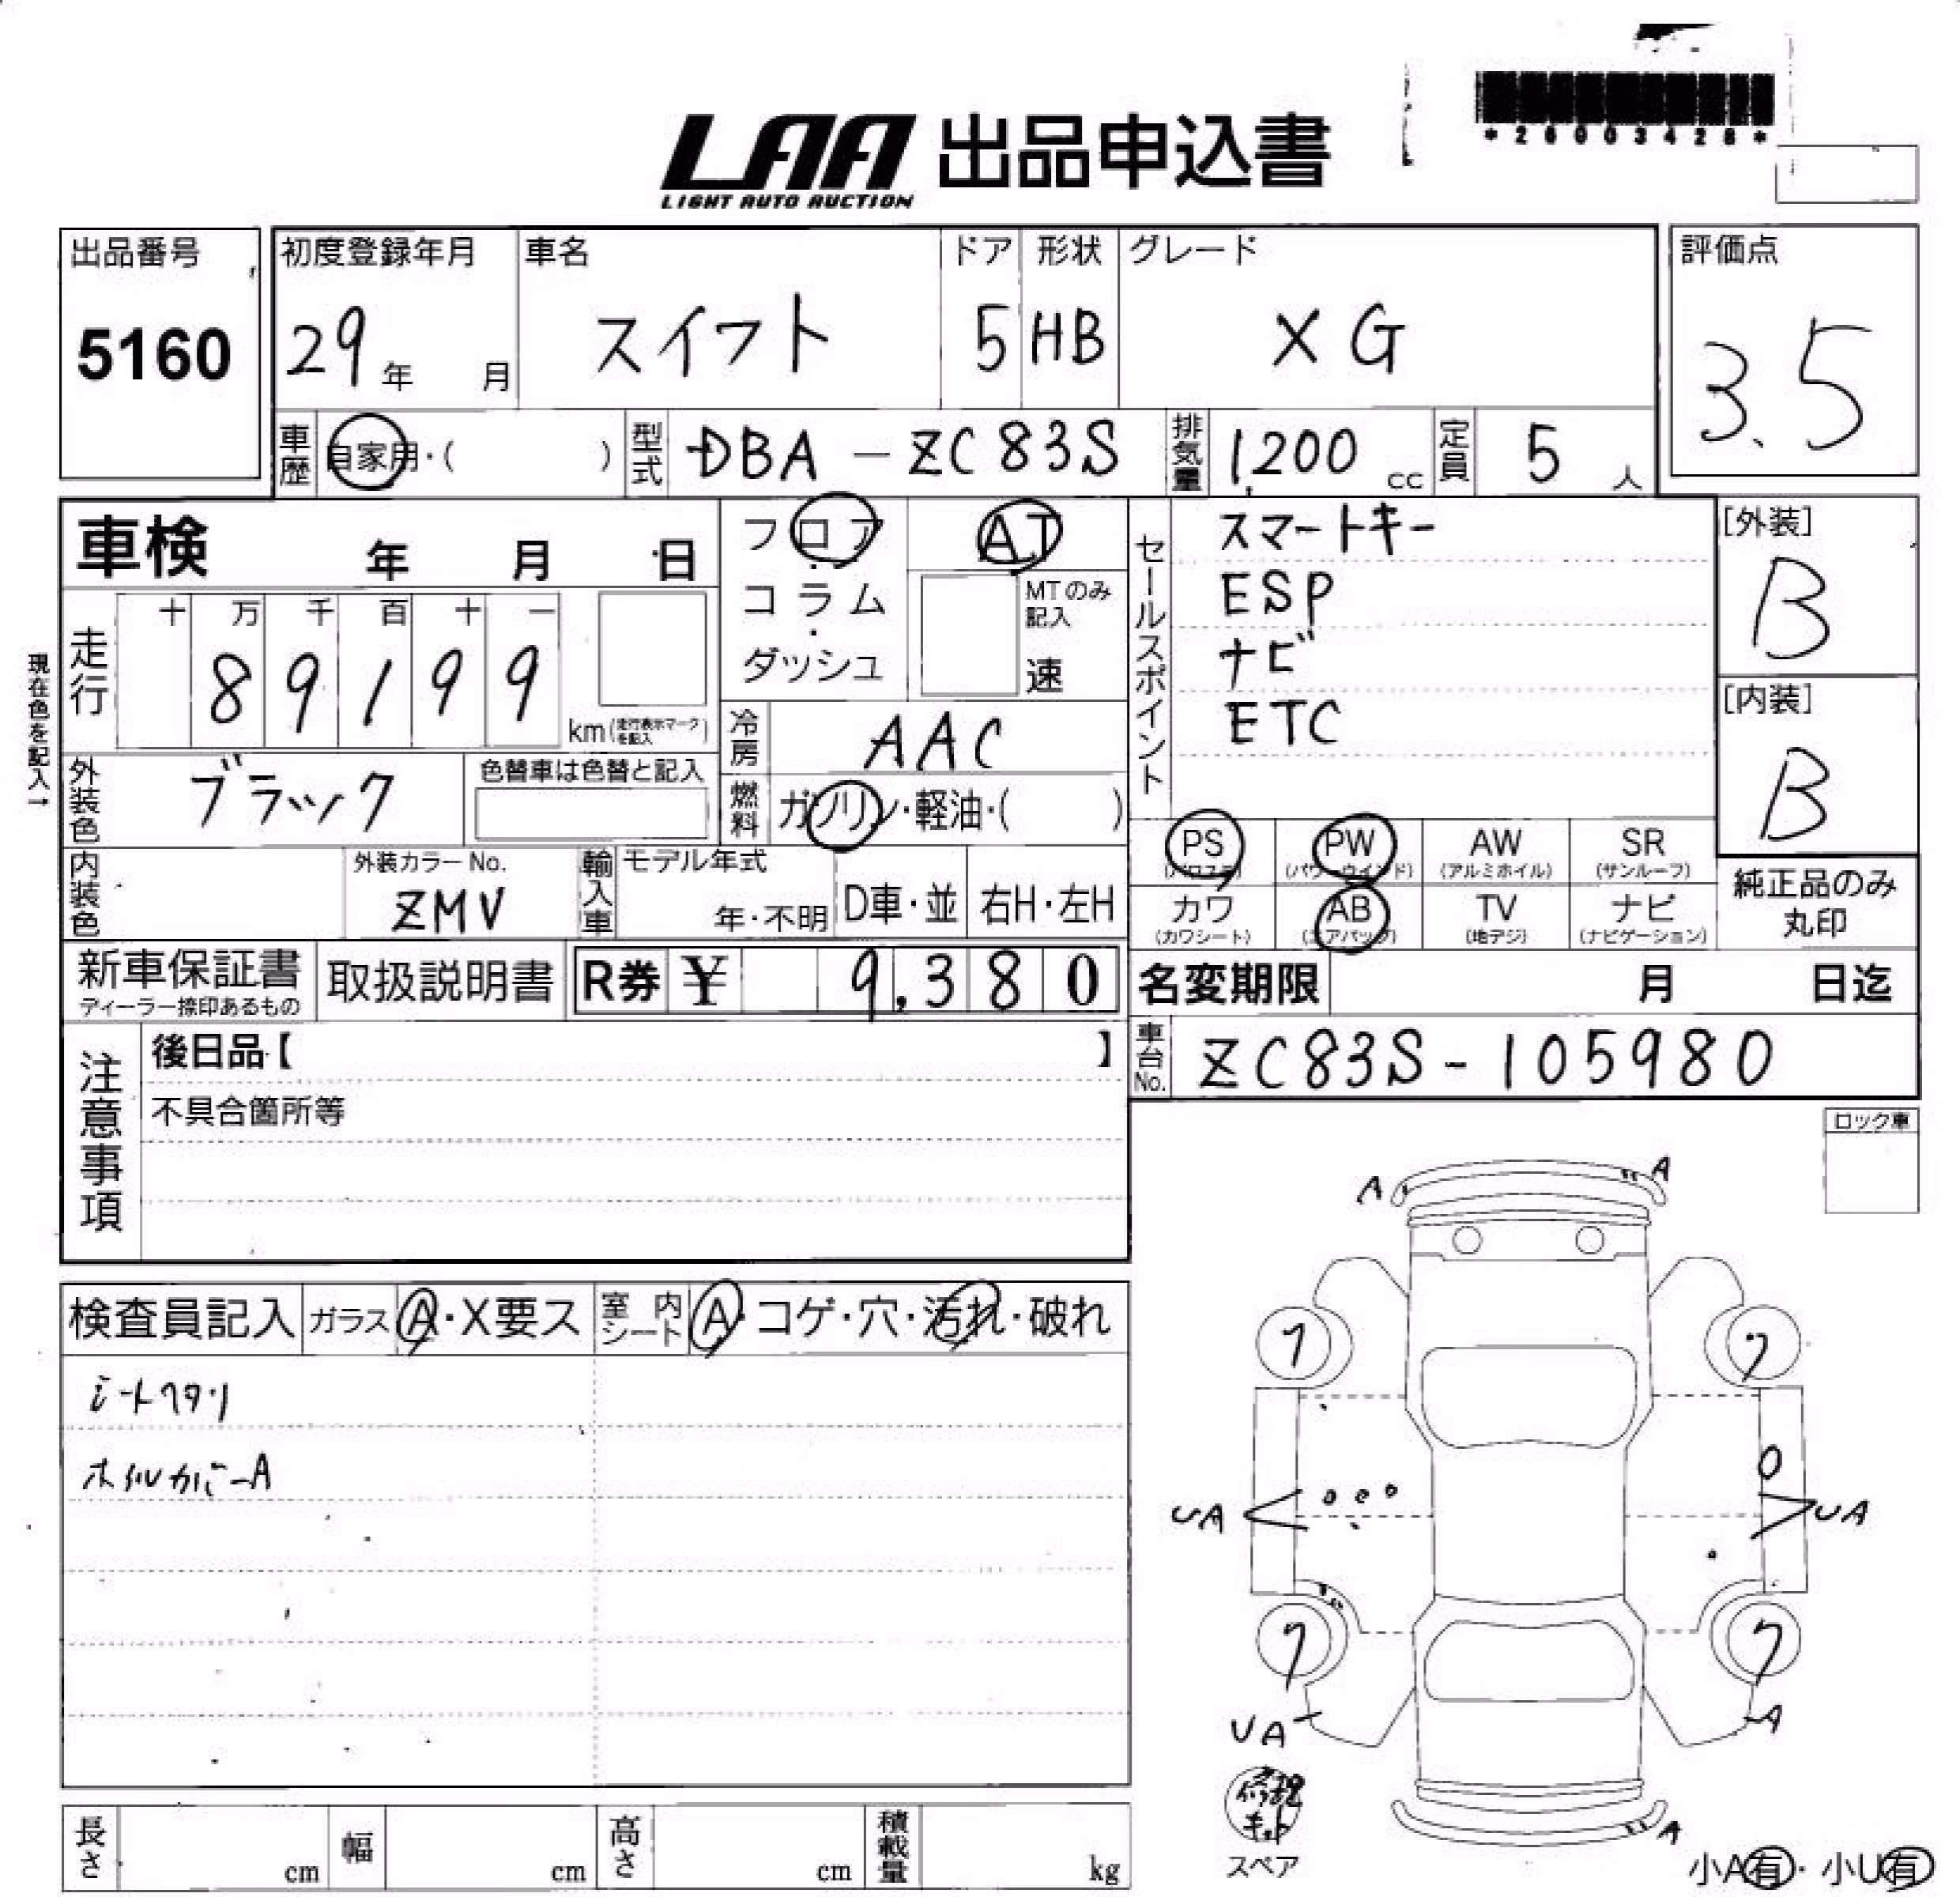 LAA 出品申込書
LIGHT AUTO AUCTION
出品番号
5160
初度登録年月
29年 月
車名
スイフト
ドア
5
形状
HB
グレード
XG
評価点
3.5
車歴
自家用・( )
型式
DBA-ZC83S
排気量
1,200 cc
定員
5 人
車検 年 月 日
フロア
・
コラム
・
ダッシュ
AT
MTのみ
記入
速
セールスポイント
スマートキー
ESP
ナビ
ETC
[外装]
B
[内装]
B
現在色を記入→
走行
十 万 千 百 十 一
8 9 1 9 9
km(走行表示マークを記入)
冷房
AAC
外装色
ブラック
色替車は色替と記入
燃料
ガソリン・軽油・( )
PS
(パワステ)
PW
(パワーウインド)
AW
(アルミホイル)
SR
(サンルーフ)
カワ
(カワシート)
AB
(エアバッグ)
TV
(地デジ)
ナビ
(ナビゲーション)
純正品のみ
丸印
内装色
外装カラーNo.
ZMV
輸入車
モデル年式
年・不明
D車・並
右H・左H
新車保証書
ディーラー捺印あるもの
取扱説明書
R券 ¥ 9,380
名変期限 月 日迄
車台No.
ZC83S-105980
注意事項
後日品【 】
不具合箇所等
ロック車
検査員記入
ガラス
A・X要ス
室内シート
A・コゲ・穴・汚れ・破れ
シートヘタリ
ホイルカバーA
A
A
フ
フ
UA
UA
フ
フ
UA
A
修理
キット
スペア
A
小A有・小U有
長さ cm
幅 cm
高さ cm
積載量 kg